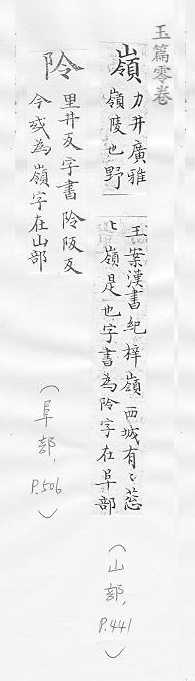 玉篇零卷
嶺
力井廣雅
嶺陵也野
王案漢書紀梓嶺西城有〻葱
〻嶺是也字書為阾字在阜部
(山部, P.441)
阾
里井反字書阾阪反
今或為嶺字在山部
(阜部, P.506)